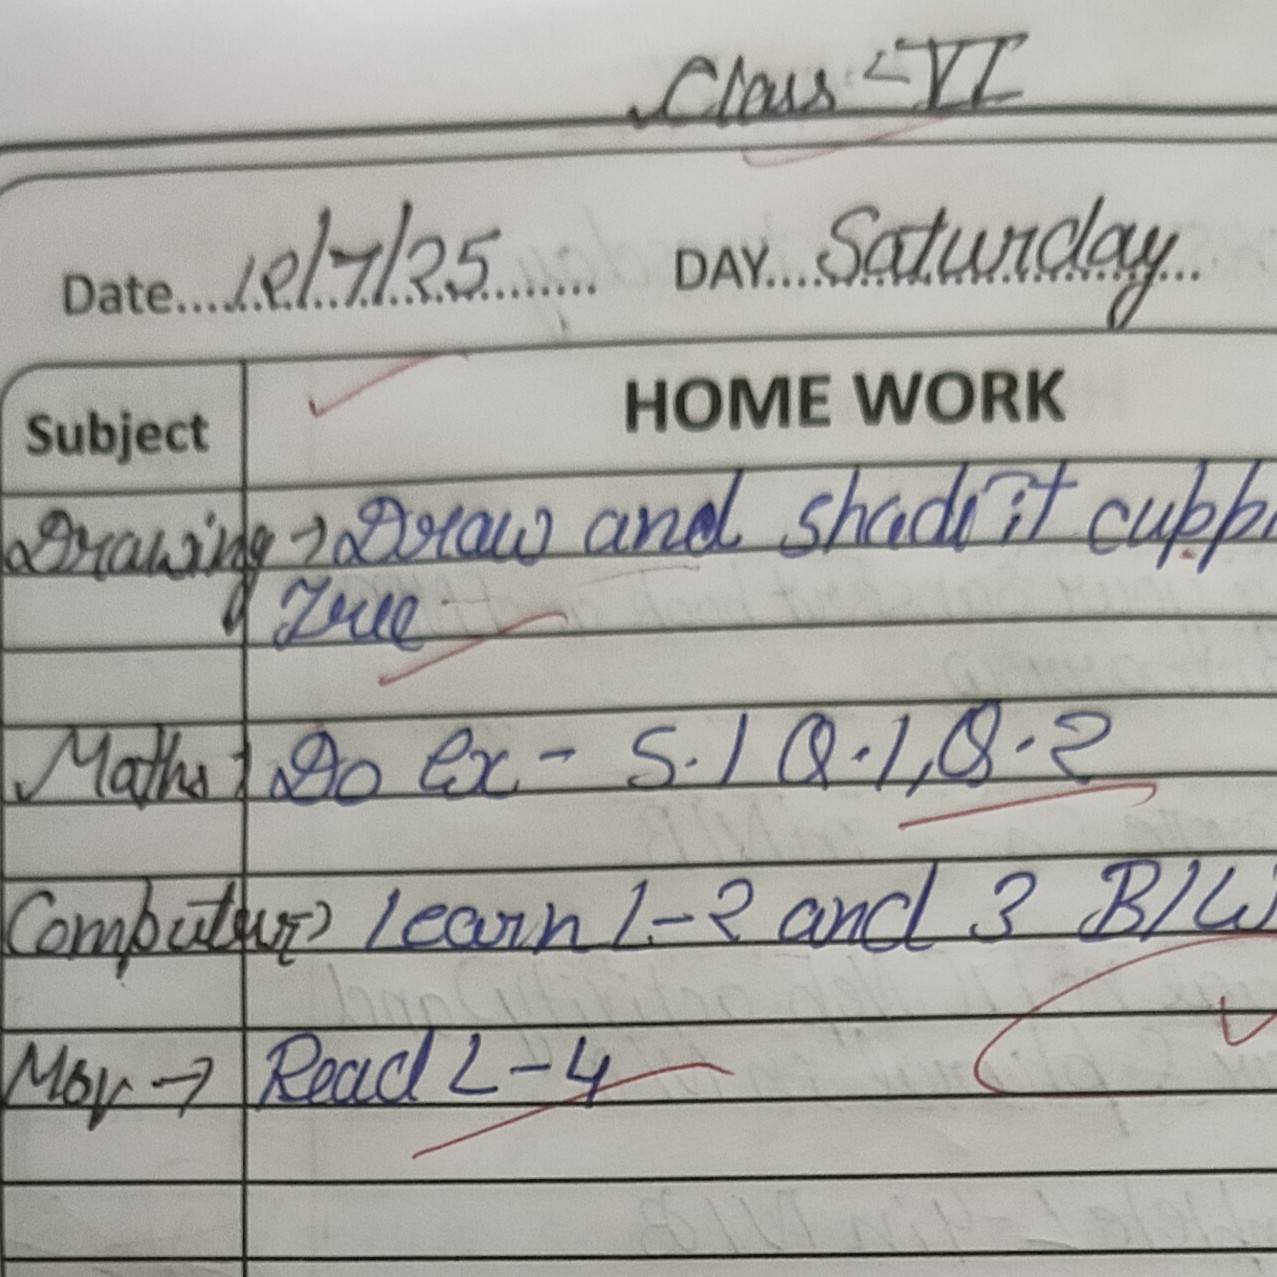 Class - VI
Date....12/7/25........ DAY....Saturday...
Subject HOME WORK
Drawing → Draw and shade it cupp
Tree
Maths → Do Ex - 5.1 Q.1, Q.2
Computer → learn L-2 and 3 B/W
Mov → Read L-4